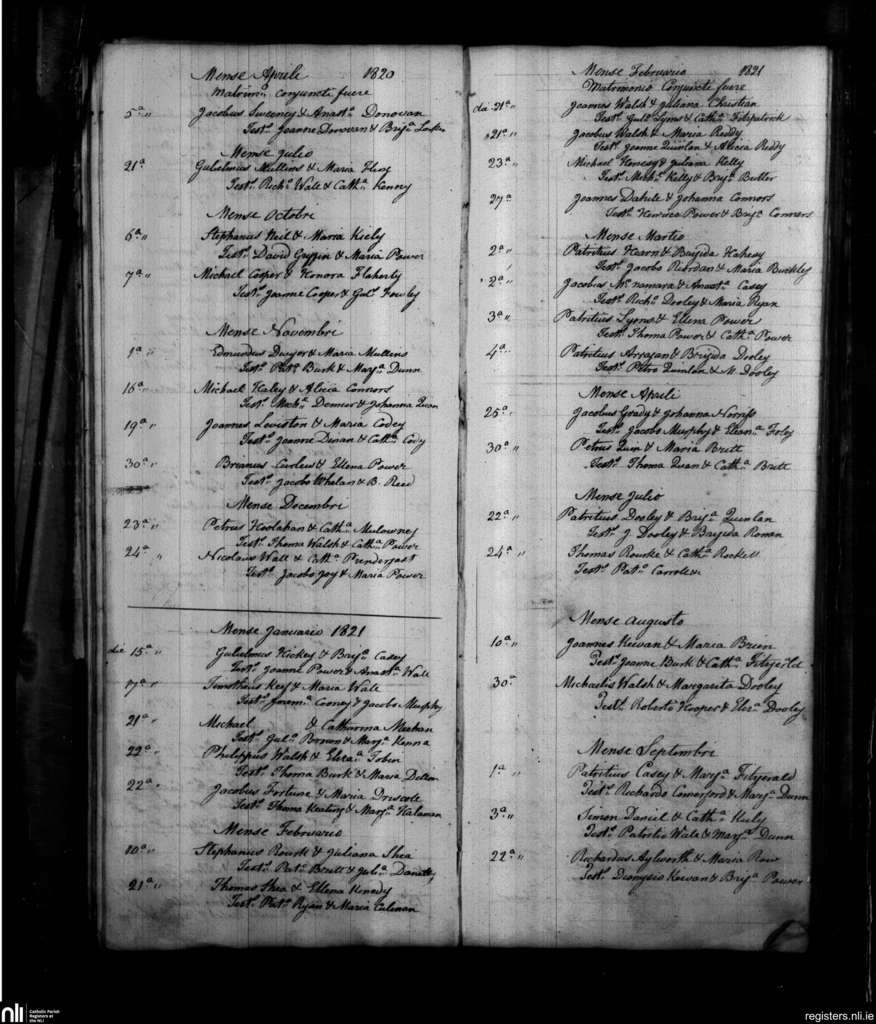 Mense Aprili 1820
Matrim: conjuncti fuere
5ª " Jacobus Sweeney & Anastª Donovan
Testˢ Joanne Donovan & Brigª
Mense Julio
21ª Gulielmus Mullens & Maria
Testˢ Richº Wall & Cathª Kenny
Mense Octobri
6ª " Stephanus Neil & Maria Kiely
Testˢ David Griffin & Maria Power
7ª " Michael Cooper & Honora Flaherty
Testˢ Joanne Cooper & Gulº Fowley
Mense Novembri
1ª " Edmundus Dwyer & Maria Mullens
Testˢ Patº Burk & Margª Dunn
16ª " Michael Haley & Alicia Connors
Testˢ Michˡ & Johanna
19ª " Joannes & Maria Codey
Testˢ Joanne & Cathª Cody
30ª " Brianus & Ellena Power
Testˢ Jacobo Whelan & B. Reed
Mense Decembri
23ª " Petrus Hoolahan & Cathª Mulowney
Testˢ Thoma Walsh & Cathª Power
24ª " Nicolaus Wall & Cathª Prendergast
Testˢ Jacobo Joy & Maria Power
Mense Januario 1821
die 15ª " Gulielmus Hickey & Brigª Casey
Testˢ Joanne Power & Anastª Wall
17ª " Timotheus & Maria Wall
Testˢ Jeremª Cooney & Jacobo Murphy
21ª " Michael & Catharina Meehan
Testˢ Gulº Brown & Margª Kenna
22ª " Philippus Walsh & Elizª Tobin
Testˢ Thoma Burk & Maria
22ª " Jacobus Fortune & Maria Driscole
Testˢ Thoma Keating & Margª
Mense Februario
10ª " Stephanus Rourk & Juliana Shea
Testˢ Patº Brett & Julª
21ª " Thomas Shea & Ellena Kenedy
Testˢ Patº Ryan & Maria
Mense Februario 1821
Matrimonio Conjuncti fuere
die 21ª " Joannes Walsh & Juliana Christian
Testˢ Gulº Lyons & Cathª Fitzpatrick
21ª " Jacobus Walsh & Maria Reddy
Testˢ Joanne Quinlan & Alicia Reddy
23ª " Michael Henesy & Juliana Kelly
Testˢ Michˡ Kelly & Brigª Butler
27ª Joannes Dahill & Johanna Connors
Testˢ Power & Brigª Connors
Mense Martio
2ª " Patritius Hearn & Brigida Hahesy
Testˢ Jacobo Riordan & Maria Buckley
2ª " Jacobus McNamara & Anastª Casey
Testˢ Richº Dooley & Maria Ryan
3ª " Patritius Lyons & Ellena Power
Testˢ Thoma Power & Cathª Power
4ª " Patritius Arragan & Brigida Dooley
Testˢ Petro Quinlan & M. Dooley
Mense Aprili
25ª " Jacobus Grady & Johanna
Testˢ Jacobo Murphy & Eleanª Foley
30ª " Petrus Quin & Maria Brett
Testˢ Thoma & Cathª Brett
Mense Julio
22ª " Patritius Dooley & Brigª Quinlan
Testˢ J. Dooley & Brigida Ronan
24ª " Thomas Rourke & Cathª Rockett
Testˢ Patº Carroll &
Mense Augusto
10ª " Joannes Keevan & Maria Brien
Testˢ Joanne Burk & Cathª Fitzgerald
30ª Michaelis Walsh & Margarita Dooley
Testˢ Roberto Hooper & Elizª Dooley
Mense Septembri
1ª " Patritius Casey & Margª Fitzgerald
Testˢ Richardo Comerford & Margª Dunn
3ª " Simon Daniel & Cathª Kiely
Testˢ Patritio Wall & Margª Dunn
22ª " Richardus Aylworth & Maria Row
Testˢ Dionysio Keevan & Brigª Power
nli
Catholic Parish
Registers at
the NLI
registers.nli.ie